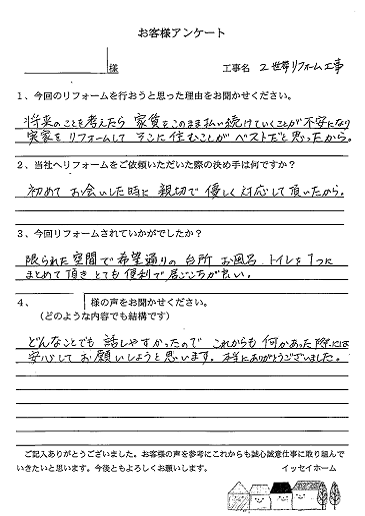 お客様アンケート
様　工事名 2世帯リフォーム工事
1、今回のリフォームを行おうと思った理由をお聞かせください。
将来のことを考えたら 家賃をこのまま払い続けていくことが不安になり
実家をリフォームして そこに住むことが ベストだと思ったから。
2、当社へリフォームをご依頼いただいた際の決め手は何ですか？
初めて お会いした時に 親切で 優しく対応して頂いたから。
3、今回リフォームされていかがでしたか？
限られた空間で希望通りの 台所 お風呂 トイレを1つに
まとめて頂き とても 便利で居ごこちが良い。
4、　様の声をお聞かせください。
（どのような内容でも結構です）
どんなことでも 話しやすかったので これからも 何かあった際には
安心して お願いしようと思います。本当にありがとうございました。
ご記入ありがとうございました。お客様の声を参考にこれからも誠心誠意仕事に取り組んで
いきたいと思います。今後ともよろしくお願いします。　イッセイホーム